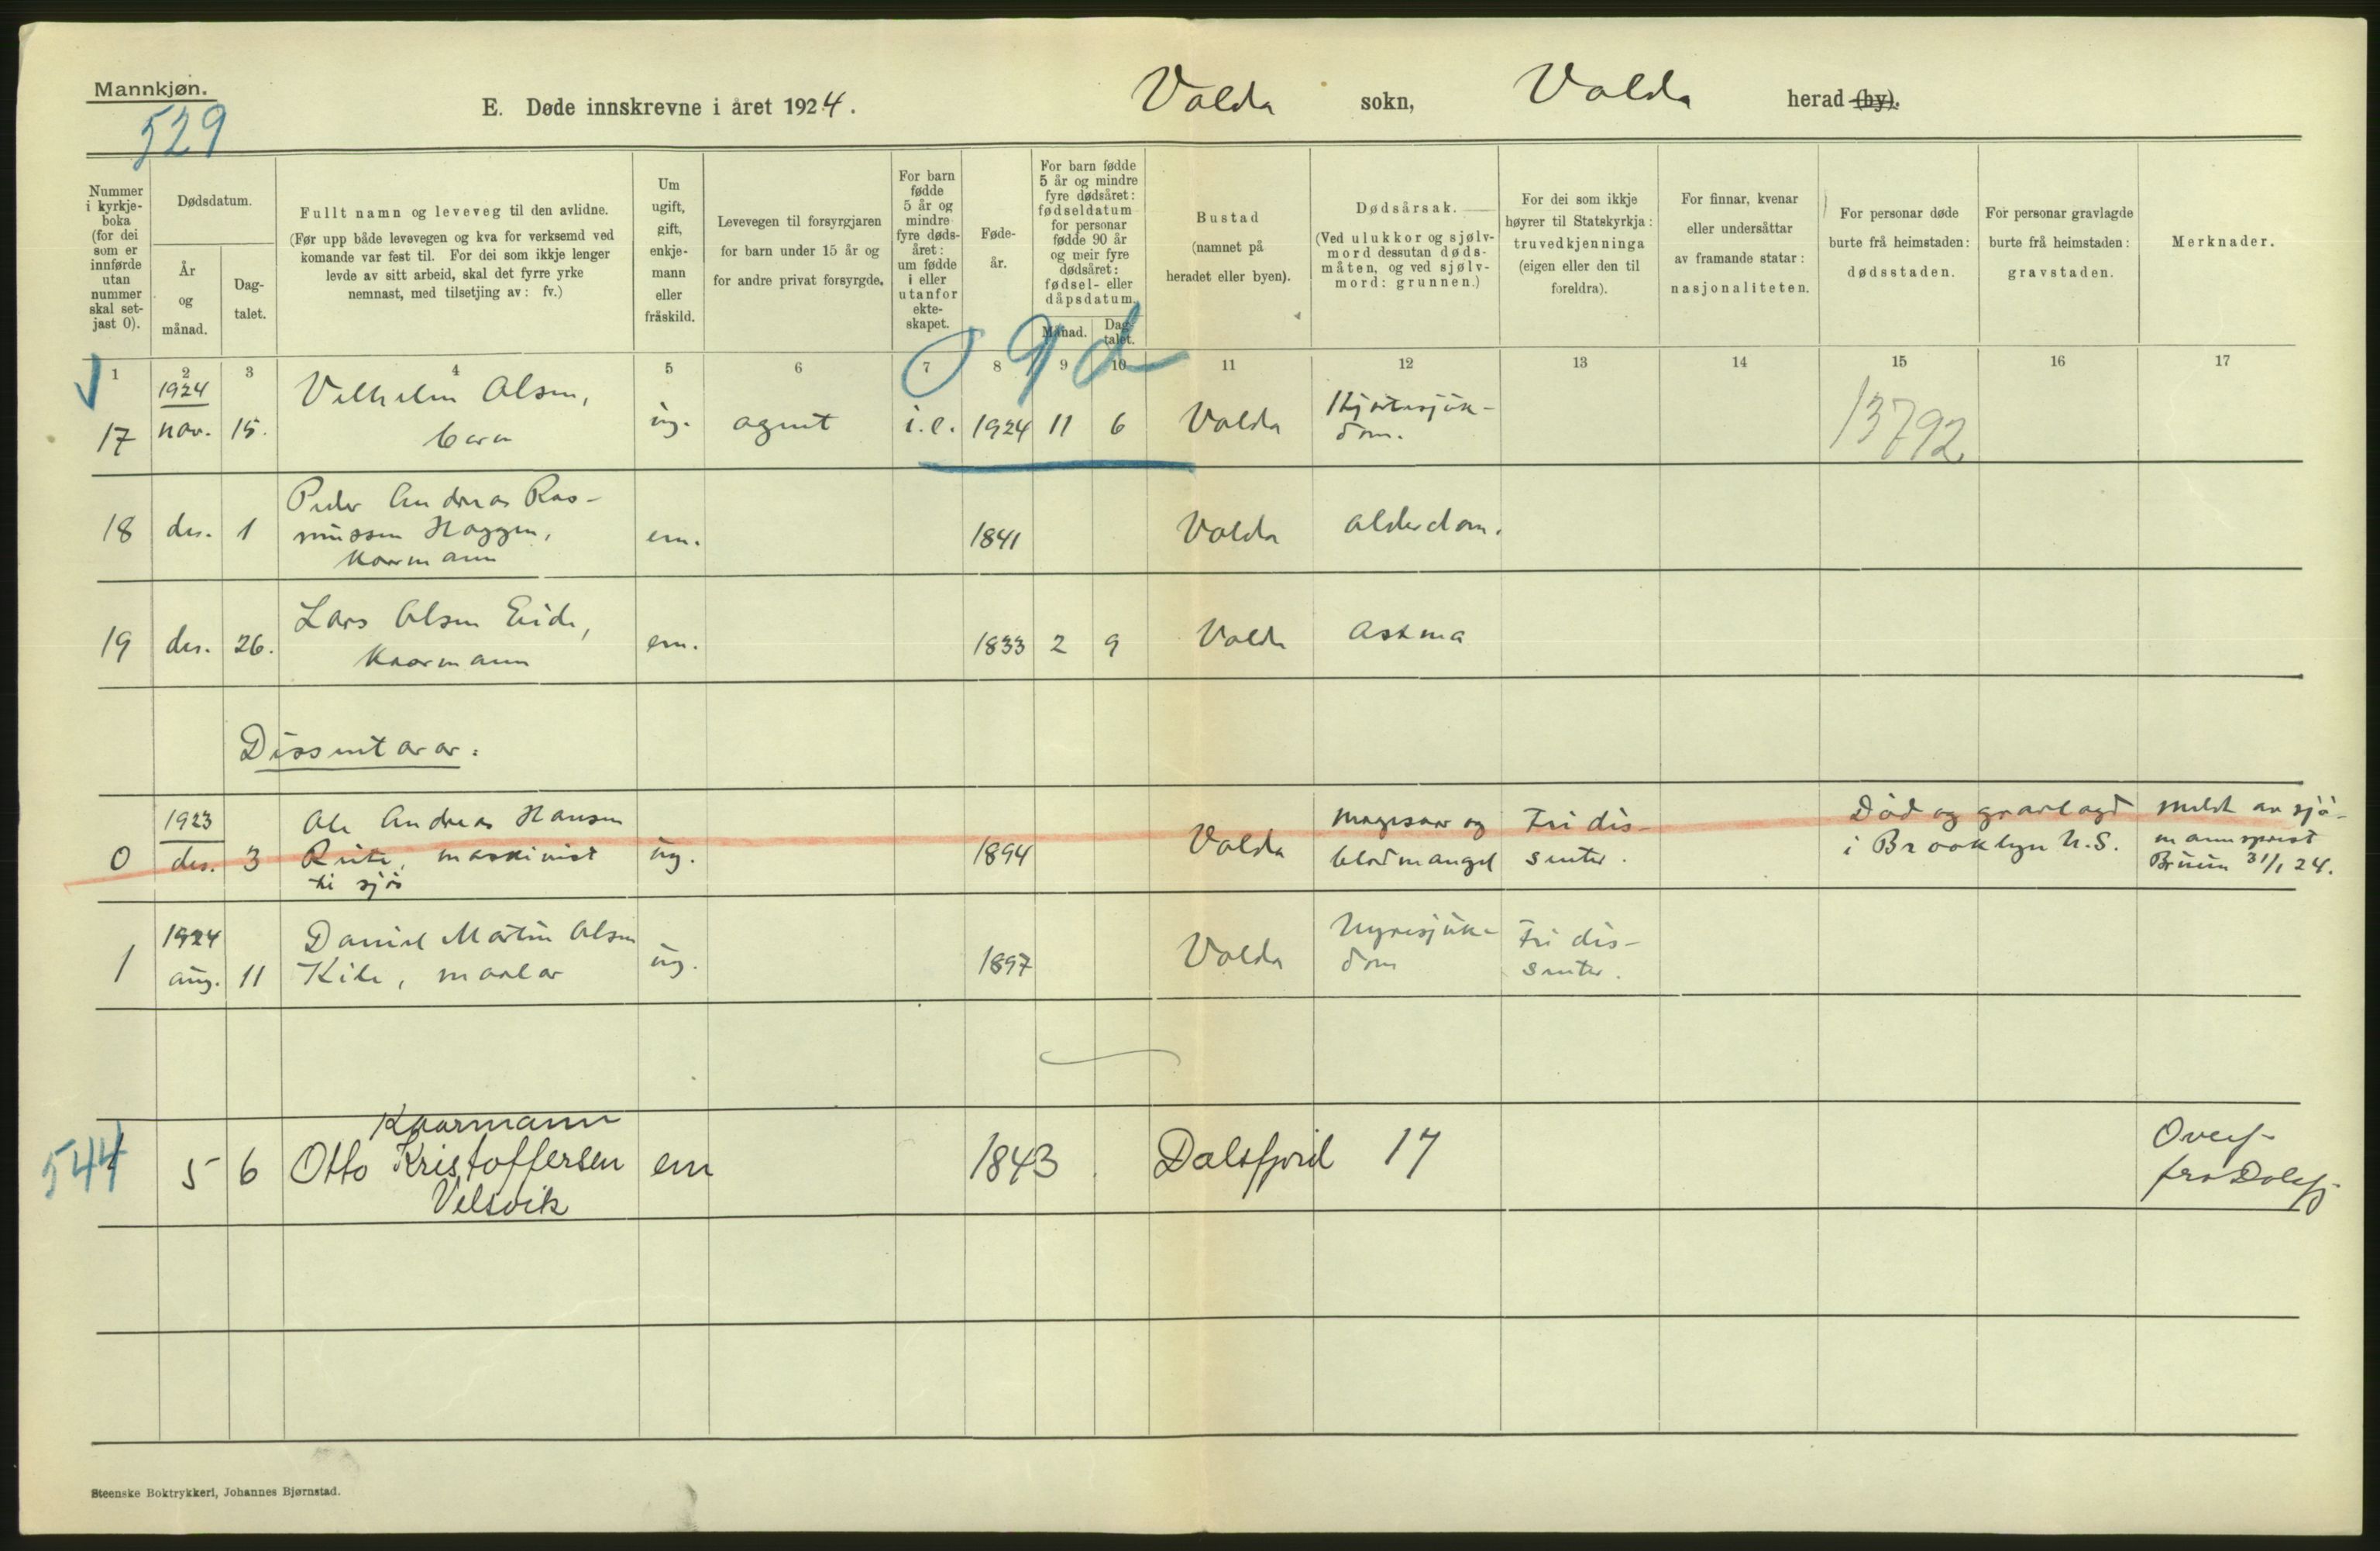 Mannkjøn.
529
E. Døde innskrevne i året 1924. Volda sokn, Volda herad (by).
Nummer i kyrkje-boka (for dei som er innførde utan nummer skal set-jast 0).
Dødsdatum.
År og månad.
Dag-talet.
Fullt namn og leveveg til den avlidne.
(Før upp både levevegen og kva for verksemd ved komande var fest til. For dei som ikkje lenger levde av sitt arbeid, skal det fyrre yrke nemnast, med tilsetjing av: fv.)
Um ugift, gift, enkje-mann eller fråskild.
Levevegen til forsyrgjaren for barn under 15 år og for andre privat forsyrgde.
For barn fødde 5 år og mindre fyre døds-året: um fødde i eller utanfor ekte-skapet.
Føde-år.
For barn fødde 5 år og mindre fyre dødsåret: fødseldatum for personar fødde 90 år og meir fyre dødsåret: fødsel- eller dåpsdatum.
Månad.
Dag-talet.
Bustad (namnet på heradet eller byen).
Dødsårsak.
(Ved ulukkor og sjølv-mord dessutan døds-måten, og ved sjølv-mord: grunnen.)
For dei som ikkje høyrer til Statskyrkja: truvedkjenninga (eigen eller den til foreldra).
For finnar, kvenar eller undersåttar av framande statar: nasjonaliteten.
For personar døde burte frå heimstaden: dødsstaden.
For personar gravlagde burte frå heimstaden: gravstaden.
Merknader.
9 d
1 2 3 4 5 6 7 8 9 10 11 12 13 14 15 16 17
1924
17 nov. 15. Vilhelm Olsen, barn ug. agent i.e. 1924 11 6 Volda Hjartesjuk-dom. 13792
18 des. 1 Peder Andreas Ras-mussen Haggen, kaarmann em. 1841 Volda alderdom.
19 des. 26. Lars Olsen Eide, kaarmann em. 1833 2 9 Volda Astma
Dissentarar:
1923
0 des. 3 Ole Andreas Hansen maskinist ti sjøs ug. 1894 Volda magesaar og blodmangel Fri dis-senter. Død og gravlagd i Brooklyn U.S. meldt av sjø-mannsprest Bruun 31/1 24.
1924
1 aug. 11 Daniel Martin Olsen Kile, maalar ug. 1897 Volda Nyresjuk-dom Fri dis-senter.
544 5 6 Kaarmann Otto Kristoffersen Velsvik em 1843 Dalsfjord 17 Overf. fra Dalsfj.
Steenske Boktrykkeri, Johannes Bjørnstad.